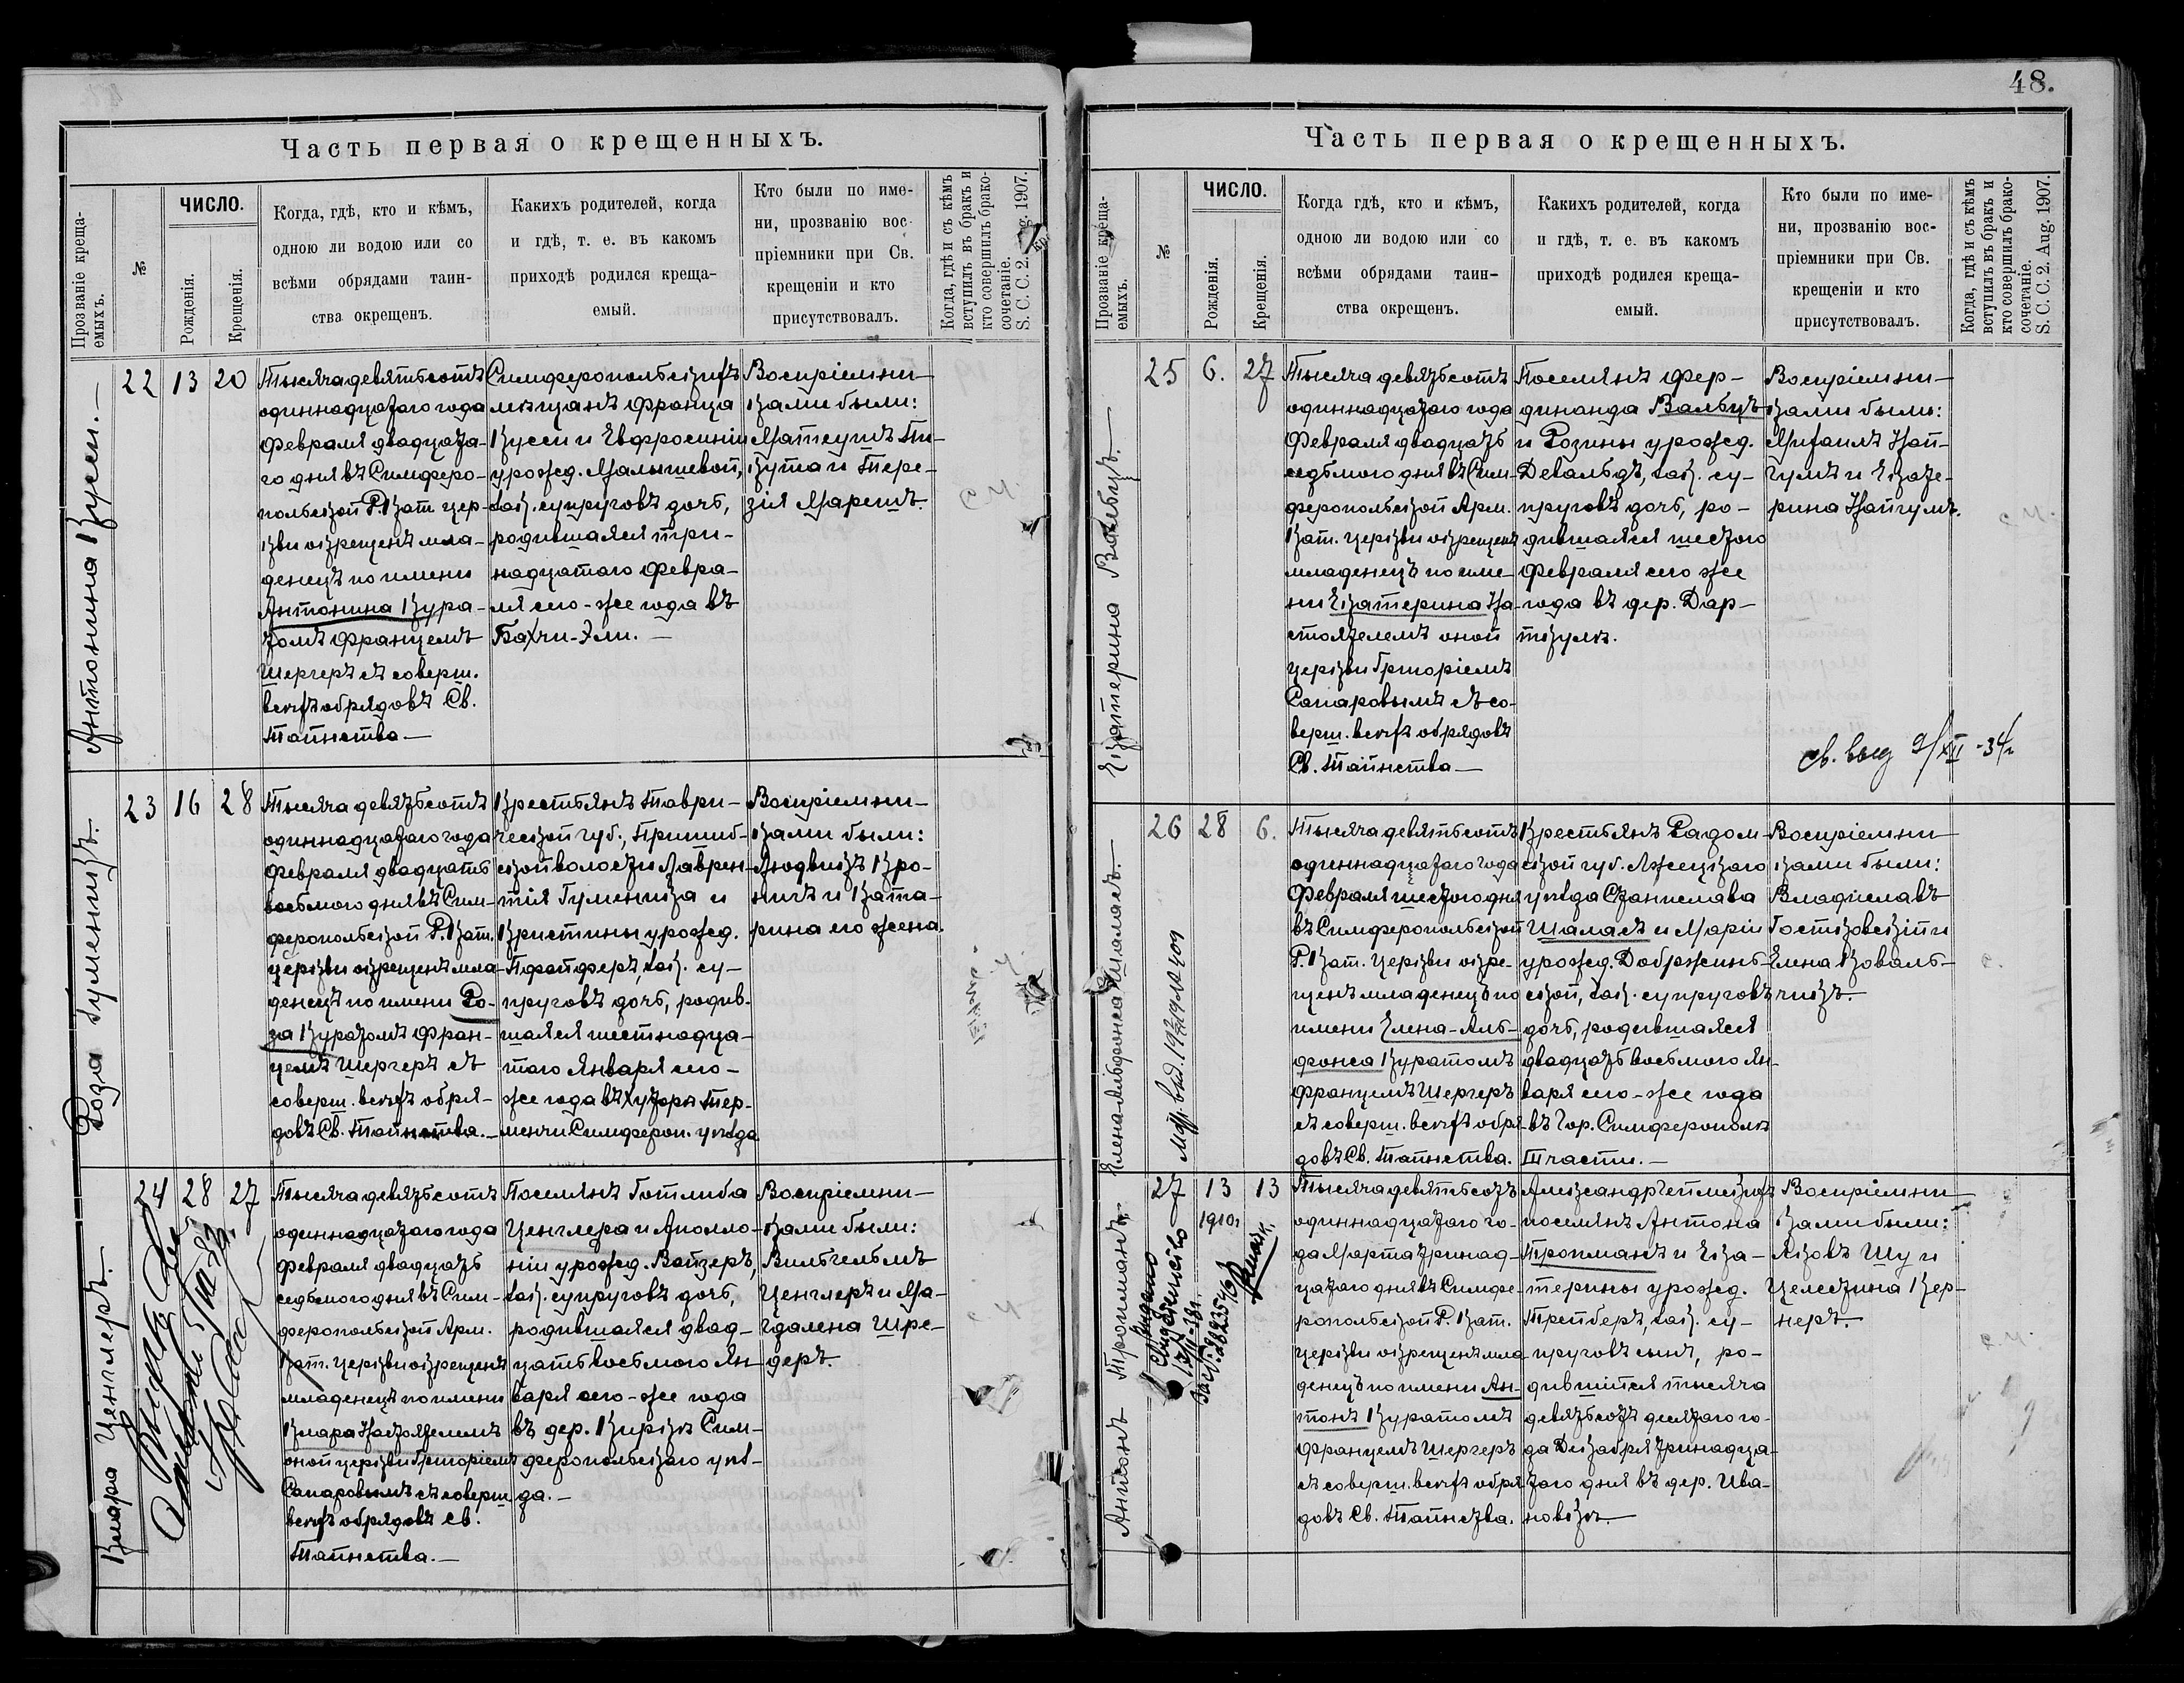 Часть первая о крещенныхъ.
Прозваніе креща-
емыхъ.
№
ЧИСЛО.
Рожденія.
Крещенія.
Когда, гдѣ, кто и кѣмъ,
одною ли водою или со
всѣми обрядами таин-
ства окрещенъ.
Какихъ родителей, когда
и гдѣ, т. е. въ какомъ
приходѣ родился креща-
емый.
Кто были по име-
ни, прозванію вос-
пріемники при Св.
крещеніи и кто
присутствовалъ.
Когда, гдѣ и съ кѣмъ
вступилъ въ бракъ и
кто совершилъ брако-
сочетаніе.
Антонина Куссн.
22
13
20
Тысяча девятьсотъ
одиннадцатаго года
Февраля двадцата-
го дня въ Симферо-
польской Р. Кат. цер-
кви окрещенъ мла-
денецъ по имени
Антонина Кура-
томъ Францемъ
Шергеръ съ соверш.
всѣхъ обрядовъ Св.
Таинства
Симферопольскихъ
мѣщанъ Франца
Кусси и Евфросиніи
урожд. Малышевой,
зак. супруговъ дочь,
родившаяся три-
надцатаго Февра-
ля сего-же года въ
Бахчи-Эли.
Воспріемни-
ками были:
Матеушъ Пи-
кута и Тере-
зія Марешъ.
Роза Гуменникъ.
23
16
28
Тысяча девятьсотъ
одиннадцатаго года
Февраля двадцать
восьмого дня въ Сим-
феропольской Р. Кат.
церкви окрещенъ мла-
денецъ по имени Ро-
за Куратомъ Фран-
цемъ Шергеръ съ
соверш. всѣхъ обря-
довъ Св. Таинства.
Крестьянъ Таври-
ческой губ., Пришиб-
ской волости Лаврен-
тія Гуменника и
Кристины урожд.
Пфейферъ, зак. су-
пруговъ дочь, родив-
шаяся шестнадца-
таго Января сего-
же года въ хуторѣ Тер-
менчи Симфероп. уѣзда
Воспріемни-
ками были:
Людвикъ Кро-
ничъ и Ката-
рина его жена.
Клара Ценглеръ.
24
28
27
Тысяча девятьсотъ
одиннадцатаго года
Февраля двадцать
седьмого дня въ Сим-
феропольской Арм.
Кат. церкви окрещенъ
младенецъ по имени
Клара Настоятелемъ
оной церкви Григоріемъ
Сапаровымъ съ соверш
всѣхъ обрядовъ Св.
Таинства.
Поселянъ Готлиба
Ценглера и Аполло-
ніи урожд. Вайзеръ,
зак. супруговъ дочь,
родившаяся двад-
цать восьмого Ян-
варя сего-же года
въ дер. Киркъ Сим-
феропольскаго уѣз-
да.
Воспріемни-
ками были:
Вильгельмъ
Ценглеръ и Ма-
гдалена Шре-
деръ.
48.
Часть первая о крещенныхъ.
Прозваніе креща-
емыхъ.
№
ЧИСЛО.
Рожденія.
Крещенія.
Когда гдѣ, кто и кѣмъ,
одною ли водою или со
всѣми обрядами таин-
ства окрещенъ.
Какихъ родителей, когда
и гдѣ, т. е. въ какомъ
приходѣ родился креща-
емый.
Кто были по име-
ни, прозванію вос-
пріемники при Св.
крещеніи и кто
присутствовалъ.
Когда, гдѣ и съ кѣмъ
вступилъ въ бракъ и
кто совершилъ брако-
сочетаніе.
S. C. C. 2. Aug. 1907.
Екатерина Вальбухъ.
25
6.
27
Тысяча девятьсотъ
одиннадцатаго года
Февраля двадцать
седьмого дня въ Сим-
феропольской Арм.
Кат. церкви окрещенъ
младенецъ по име-
ни Екатерина На-
стоятелемъ оной
церкви Григоріемъ
Сапаровымъ съ со-
верш. всѣхъ обрядовъ
Св. Таинства
Поселянъ Фер-
динанда Вальбухъ
и Розины урожд.
Девальдъ, зак. су-
пруговъ дочь, ро-
дившаяся шестого
Февраля сего же
года въ дер. Дар-
ткулѣ.
Воспріемни-
ками были:
Михаилъ Най-
гумъ и Екате-
рина Найгумъ.
Елена-Альфонса Шаламъ.
26
28
6.
Тысяча девятьсотъ
одиннадцатаго года
Февраля шестого дня
въ Симферопольской
Р. Кат. церкви окре-
щенъ младенецъ по
имени Елена-Аль-
фонса Куратомъ
Францемъ Шергеръ
съ соверш. всѣхъ обря-
довъ Св. Таинства.
Крестьянъ Радом-
ской губ. Илжецкаго
уѣзда Станислава
Шаламъ и Маріи
урожд. Добржинь-
ской, зак. супруговъ
дочь, родившаяся
двадцать восьмого Ян-
варя сего-же года
въ гор. Симферополѣ
III части.
Воспріемни
ками были:
Владиславъ
Гостковскій и
Елена Коваль-
чикъ.
Антонъ Тропманъ.
27
13
1910г
13
Тысяча девятьсотъ
одиннадцатаго го-
да Марта тринад-
цатаго дня въ Симфе-
ропольской Р. Кат.
церкви окрещенъ мла-
денецъ по имени Ан-
тонъ Куратомъ
Францемъ Шергеръ
съ соверш. всѣхъ обря-
довъ Св. Таинства.
Александрфельскихъ
поселянъ Антона
Тропманъ и Ека-
терины урожд.
Трейберъ, зак. су-
пруговъ сынъ, ро-
дившійся тысяча
девятьсотъ десятаго го-
да Декабря тринадца-
таго дня въ дер. Ива-
новкѣ.
Воспріемни
ками были:
Яковъ Шу и
Целестина Кер-
неръ.